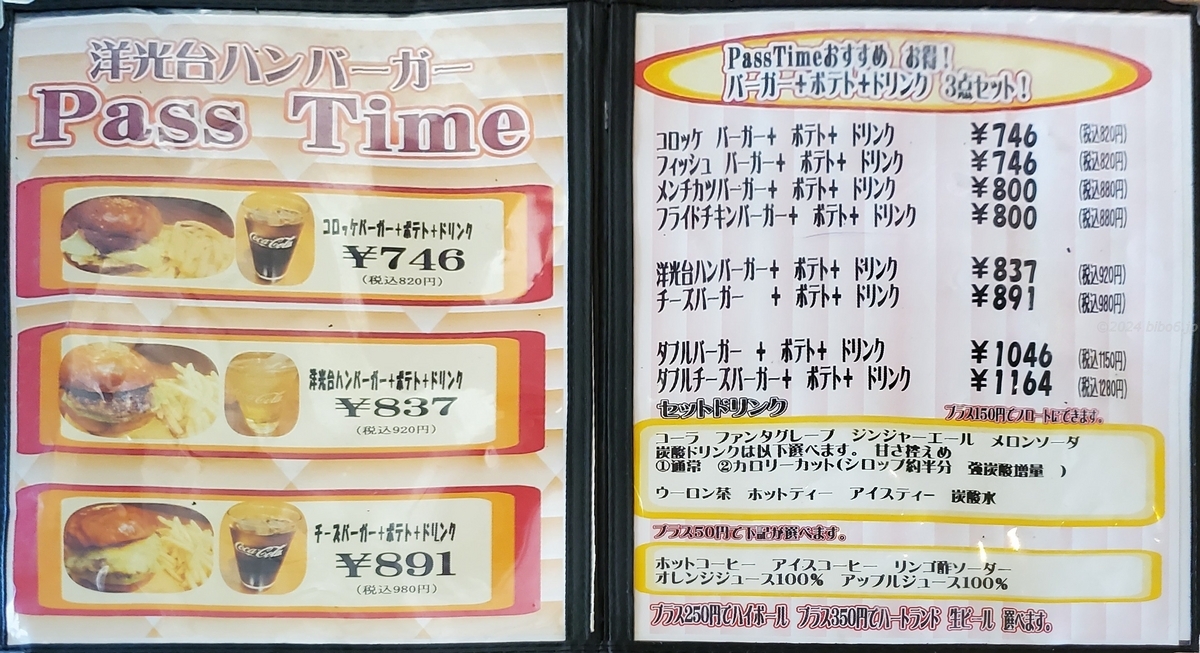 洋光台ハンバーガー
Pass Time
コロッケバーガー+ポテト+ドリンク
¥746
(税込820円)
Coca-Cola
洋光台ハンバーガー+ポテト+ドリンク
¥837
(税込920円)
チーズバーガー+ポテト+ドリンク
¥891
(税込980円)
Coca-Cola
PassTimeおすすめ お得!
バーガー+ポテト+ドリンク 3点セット!
コロッケ バーガー+ ポテト+ ドリンク ¥746 (税込820円)
フィッシュ バーガー+ ポテト+ ドリンク ¥746 (税込820円)
メンチカツバーガー+ ポテト+ ドリンク ¥800 (税込880円)
フライドチキンバーガー+ ポテト+ ドリンク ¥800 (税込880円)
洋光台ハンバーガー+ ポテト+ ドリンク ¥837 (税込920円)
チーズバーガー + ポテト+ ドリンク ¥891 (税込980円)
ダブルバーガー + ポテト+ ドリンク ¥1046 (税込1150円)
ダブルチーズバーガー+ ポテト+ ドリンク ¥1164 (税込1280円)
セットドリンク プラス150円でフロートにできます。
コーラ ファンタグレープ ジンジャーエール メロンソーダ
炭酸ドリンクは以下選べます。 甘さ控えめ
①通常 ②カロリーカット(シロップ約半分 強炭酸増量 )
ウーロン茶 ホットティー アイスティー 炭酸水
プラス50円で下記が選べます。
ホットコーヒー アイスコーヒー リンゴ酢ソーダー
オレンジジュース100% アップルジュース100%
プラス250円でハイボール プラス350円でハートランド 生ビール 選べます。